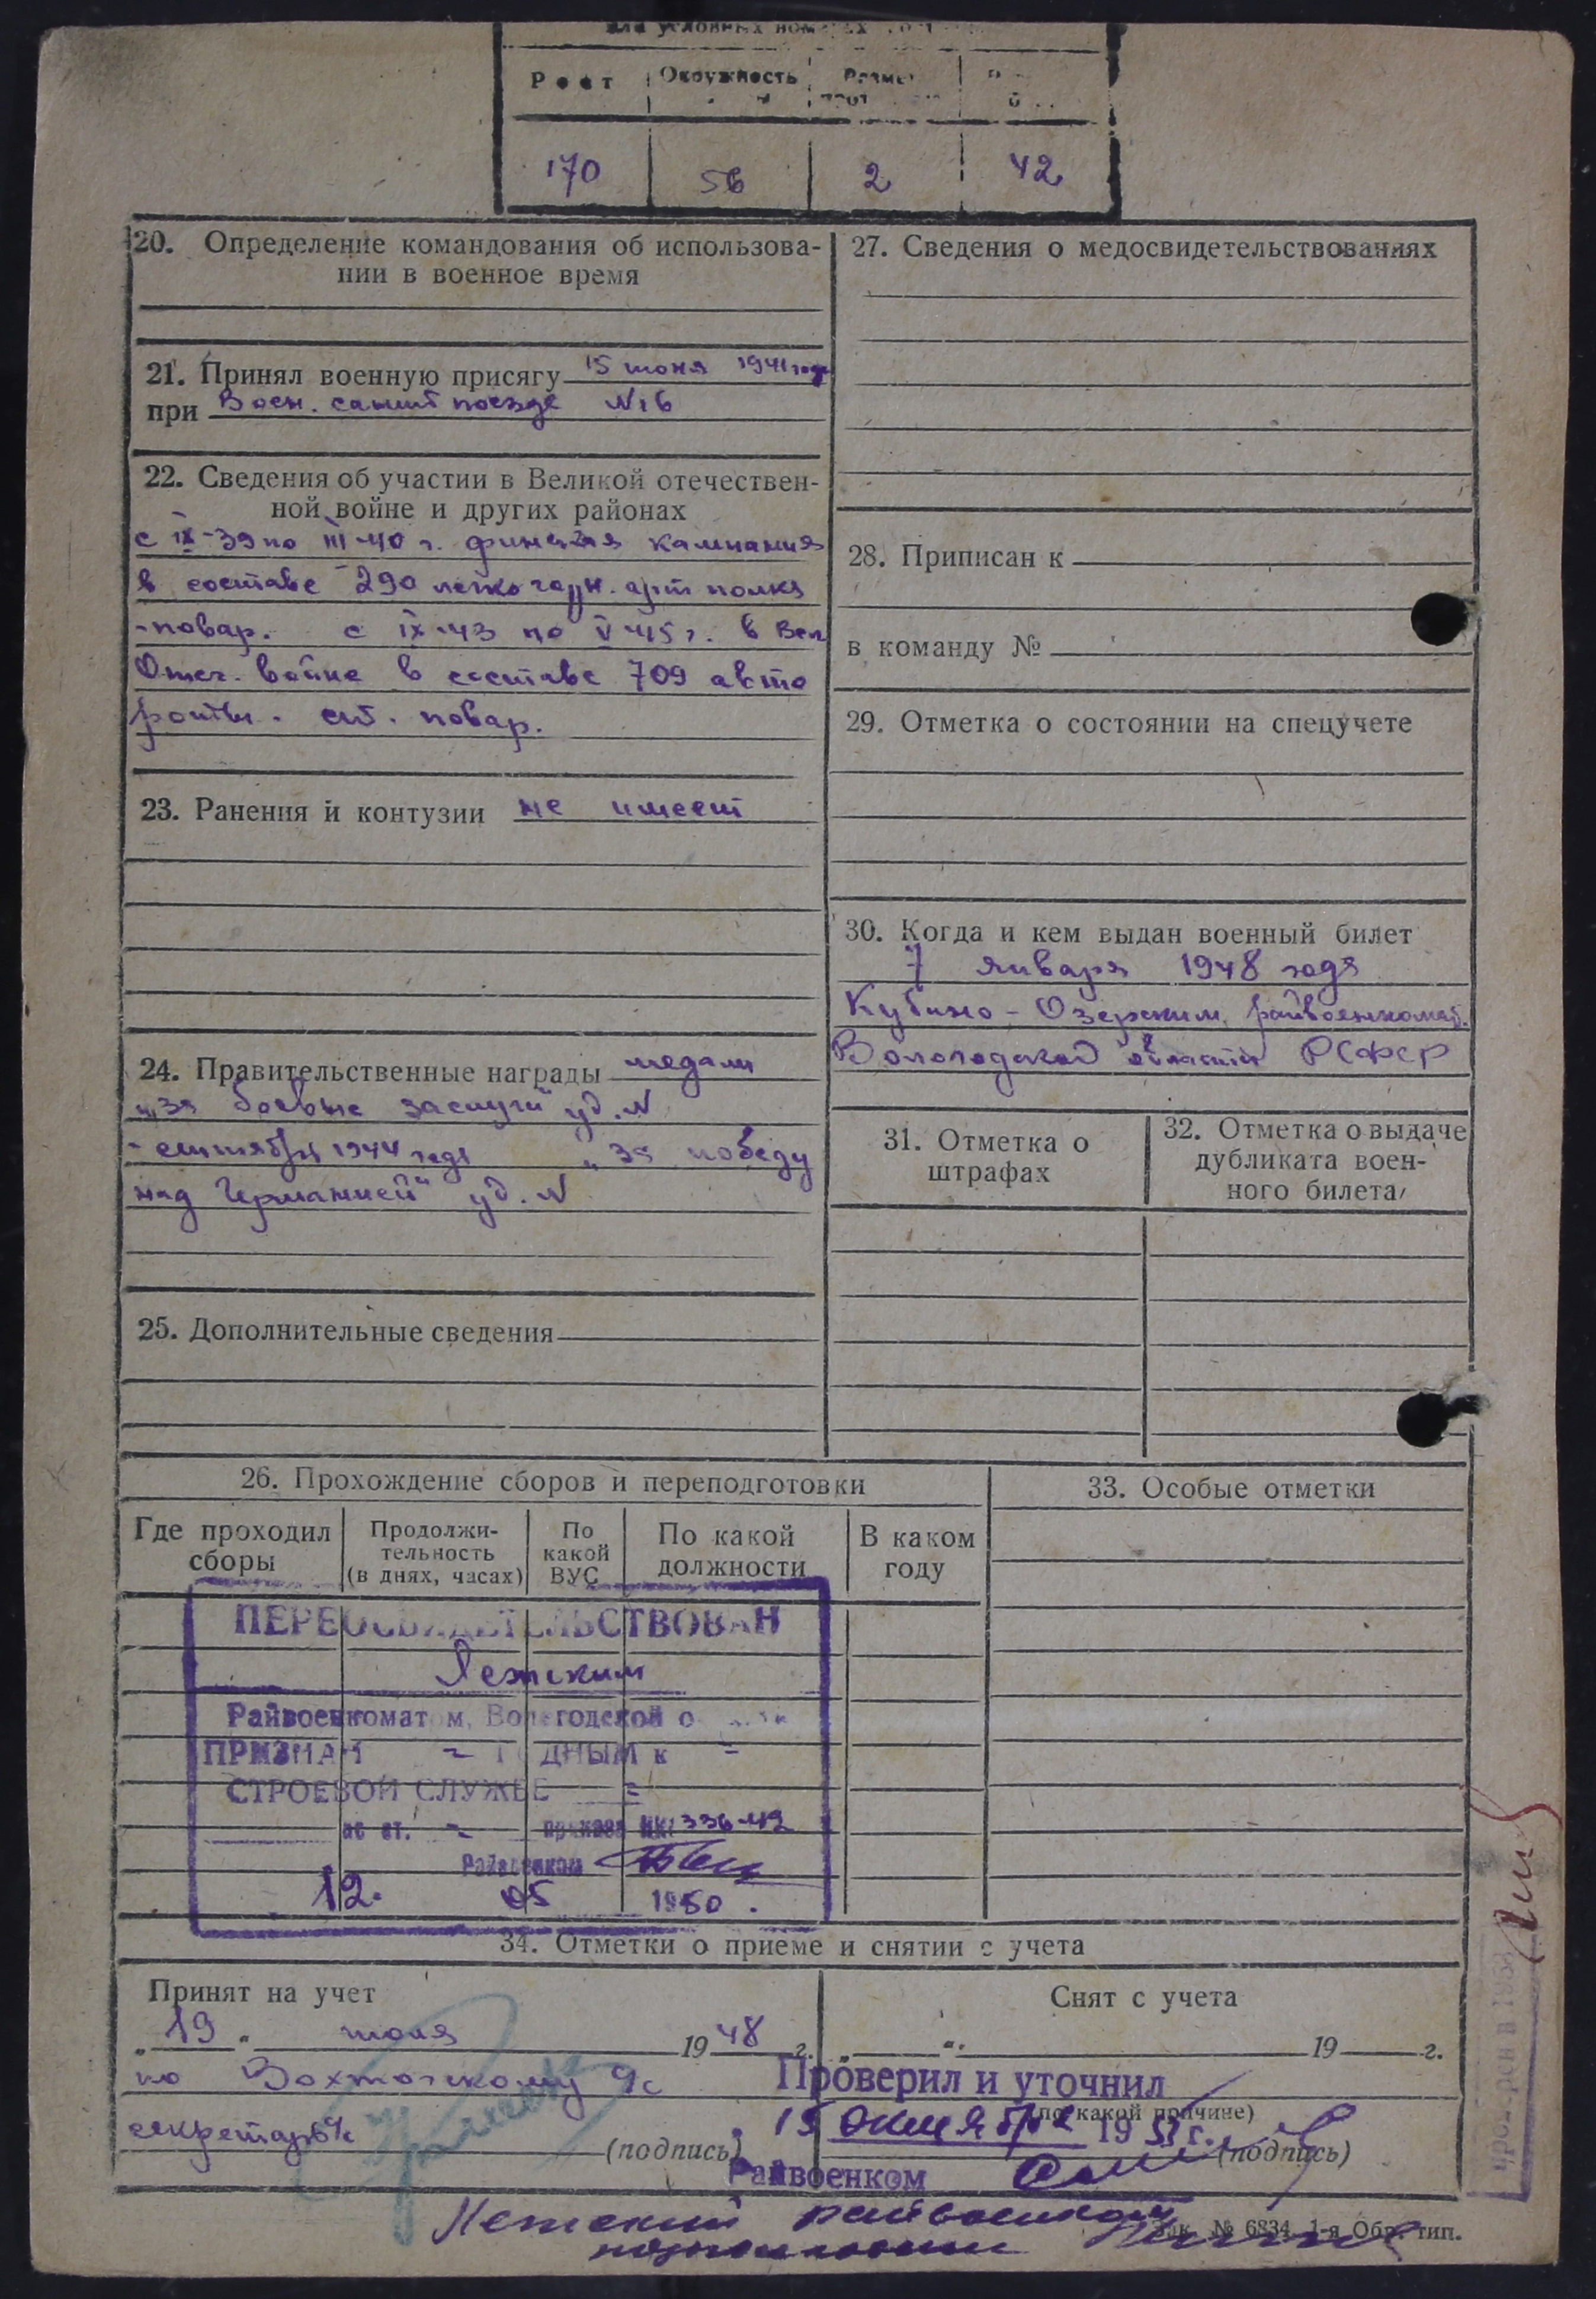 Рост Окружность
170 56 2 42
20. Определение командования об использова-
нии в военное время
21. Принял военную присягу 15 июня 1941 года
при Воен. санит поезде №16
22. Сведения об участии в Великой отечествен-
ной войне и других районах
с IX-39 по III-40 г. финская кампания
в составе 290 легко гауб. арт полка
-повар. с IX-43 по V-45 г. в Вел
Отеч. войне в составе 709 авто
роты. ст. повар.
23. Ранения и контузии не имеет
24. Правительственные награды медали
"за боевые заслуги" уд. N
-сентября 1944 года "за победу
над Германией" уд. N
25. Дополнительные сведения
27. Сведения о медосвидетельствованиях
28. Приписан к
в команду №
29. Отметка о состоянии на спецучете
30. Когда и кем выдан военный билет
7 января 1948 года
Кубино-Озерским райвоенкомат.
Вологодской области РСФСР
31. Отметка о
штрафах
32. Отметка о выдаче
дубликата воен-
ного билета
26. Прохождение сборов и переподготовки
Где проходил
сборы
Продолжи-
тельность
(в днях, часах)
По
какой
ВУС
По какой
должности
В каком
году
33. Особые отметки
ПЕРЕОСВИДЕТЕЛЬСТВОВАН
Лежским
Райвоенкоматом, Вологодской
ПРИЗНАН - ГОДНЫМ к -
СТРОЕВОЙ СЛУЖБЕ -
ст. - приказа 336-42
Райвоенком
12. 05 1950.
34. Отметки о приеме и снятии с учета
Принят на учет
"19" июля 1948 г.
по Вохтожскому
секретарь
(подпись)
Снят с учета
" " 19 г.
(по какой причине)
(подпись)
Проверил и уточнил
15 октября 1953 г.
Райвоенком
Лежский райвоенком
подполковник
Зак. № 6834 1-я Обр. тип.